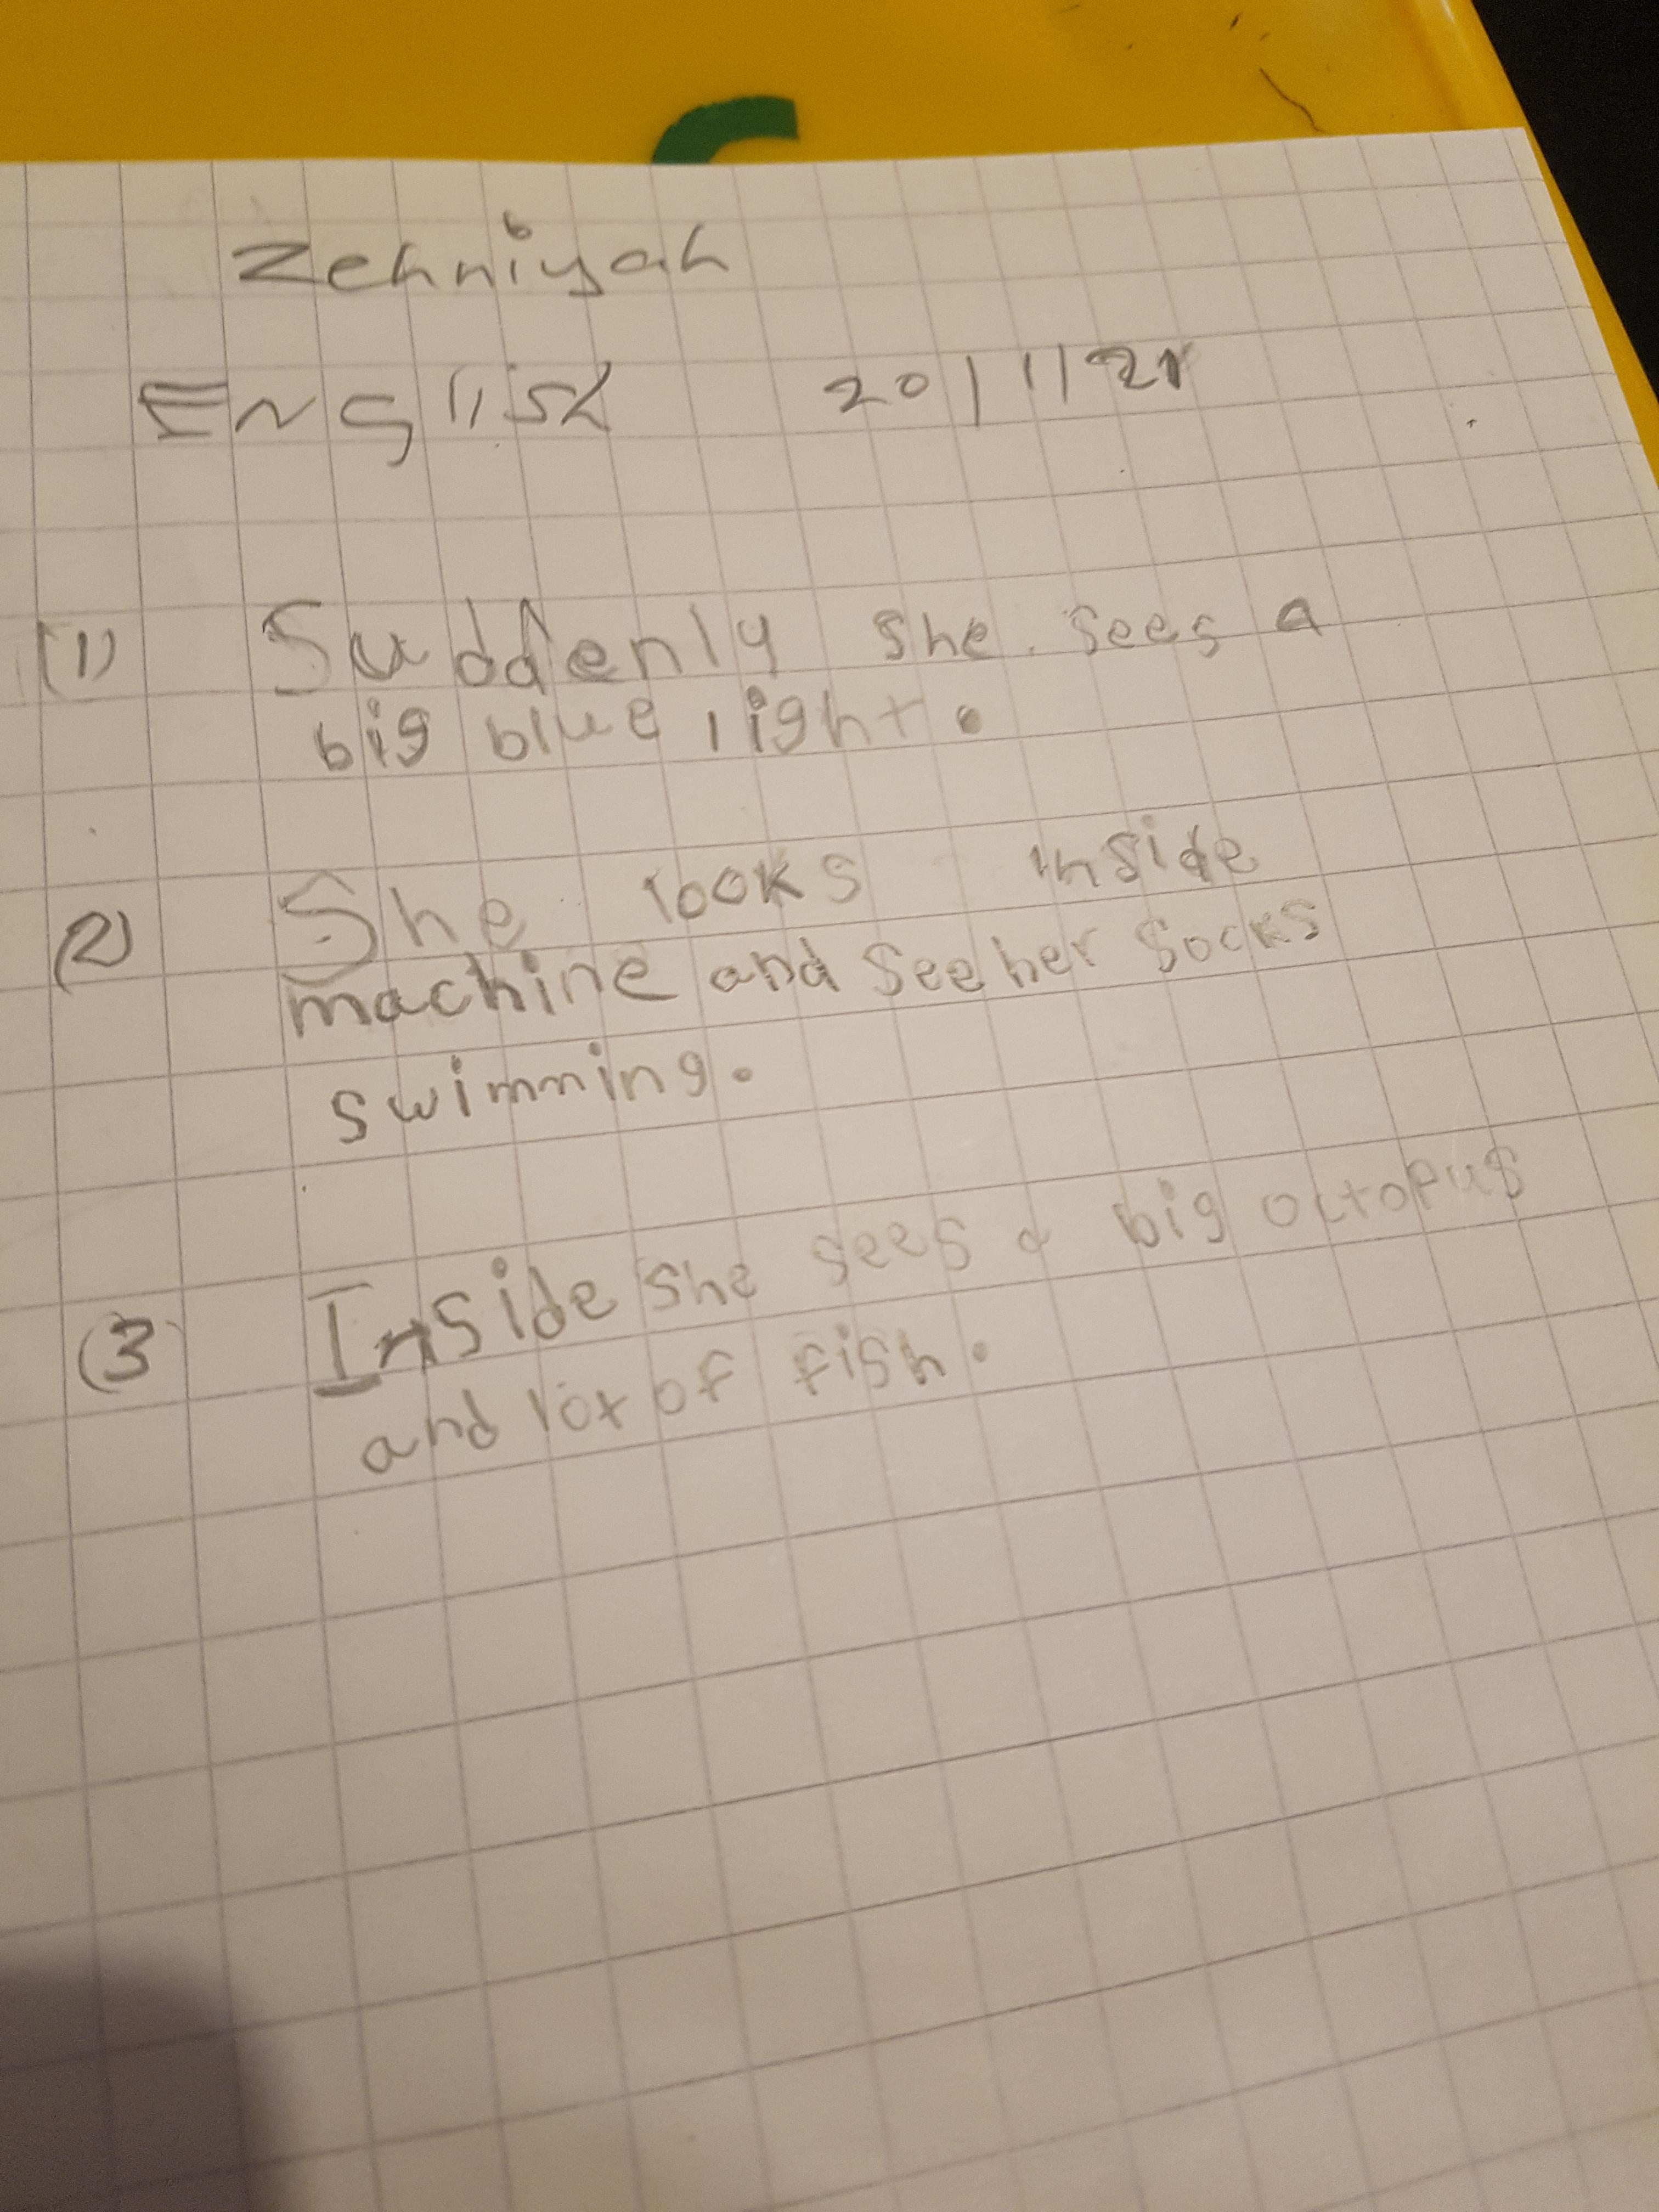 Zehniyah
English 20/1/21
(1) Suddenly she sees a
big blue light.
(2) She looks inside
machine and see her socks
swimming.
(3) Inside she sees a big octopus
and lot of fish.